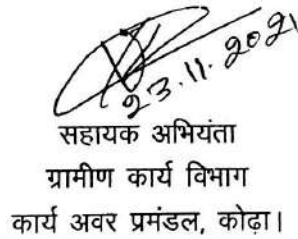 23.11.2021
सहायक अभियंता
ग्रामीण कार्य विभाग
कार्य अवर प्रमंडल, कोढ़ा।